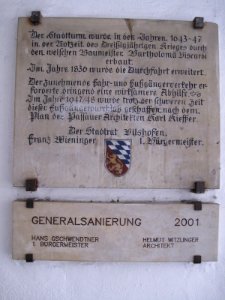 Der Stadtturm wurde in den Jahren 1643-47
in der Notzeit des Dreißigjährigen Krieges durch
den welschen Baumeister Bartholomä Viscardi
erbaut.
Im Jahre 1830 wurde die Durchfahrt erweitert.
Der zunehmende Fahr-und Fußgängerverkehr er-
forderte dringend eine wirksame Abhilfe. So
Im Jahre 1947/48 wurde trotz der schweren Zeit
dieser Fußgängerdurchbruch geschaffen nach dem
Plan des Passauer Architekten Karl Kieffer.
Der Stadtrat Vilshofen.
Franz Wieninger 1. Bürgermeister.
GENERALSANIERUNG 2001
HANS GSCHWENDTNER
1. BÜRGERMEISTER
HELMUT WITZLINGER
ARCHITEKT